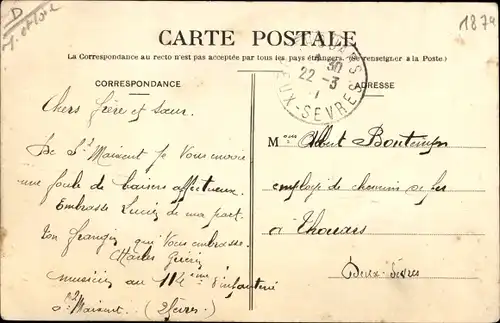 D
1874
CARTE POSTALE
La Correspondance au recto n'est pas acceptée par tous les pays étrangers. (Se renseigner à la Poste.)
CORRESPONDANCE
ADRESSE
30
22 -3
DEUX-SEVRES
Chers frère et sœur.
De St Maixent Je Vous envoie
une foule de baisers affectueux.
Embrasse Lucie de ma part.
Ton frangin qui Vous embrasse.
musicien au 114ème d'infanterie
St Maixent (2 Sèvres)
Mons Albert Bontemps
employé de chemins de fer
à Thouars
Deux-Sèvres